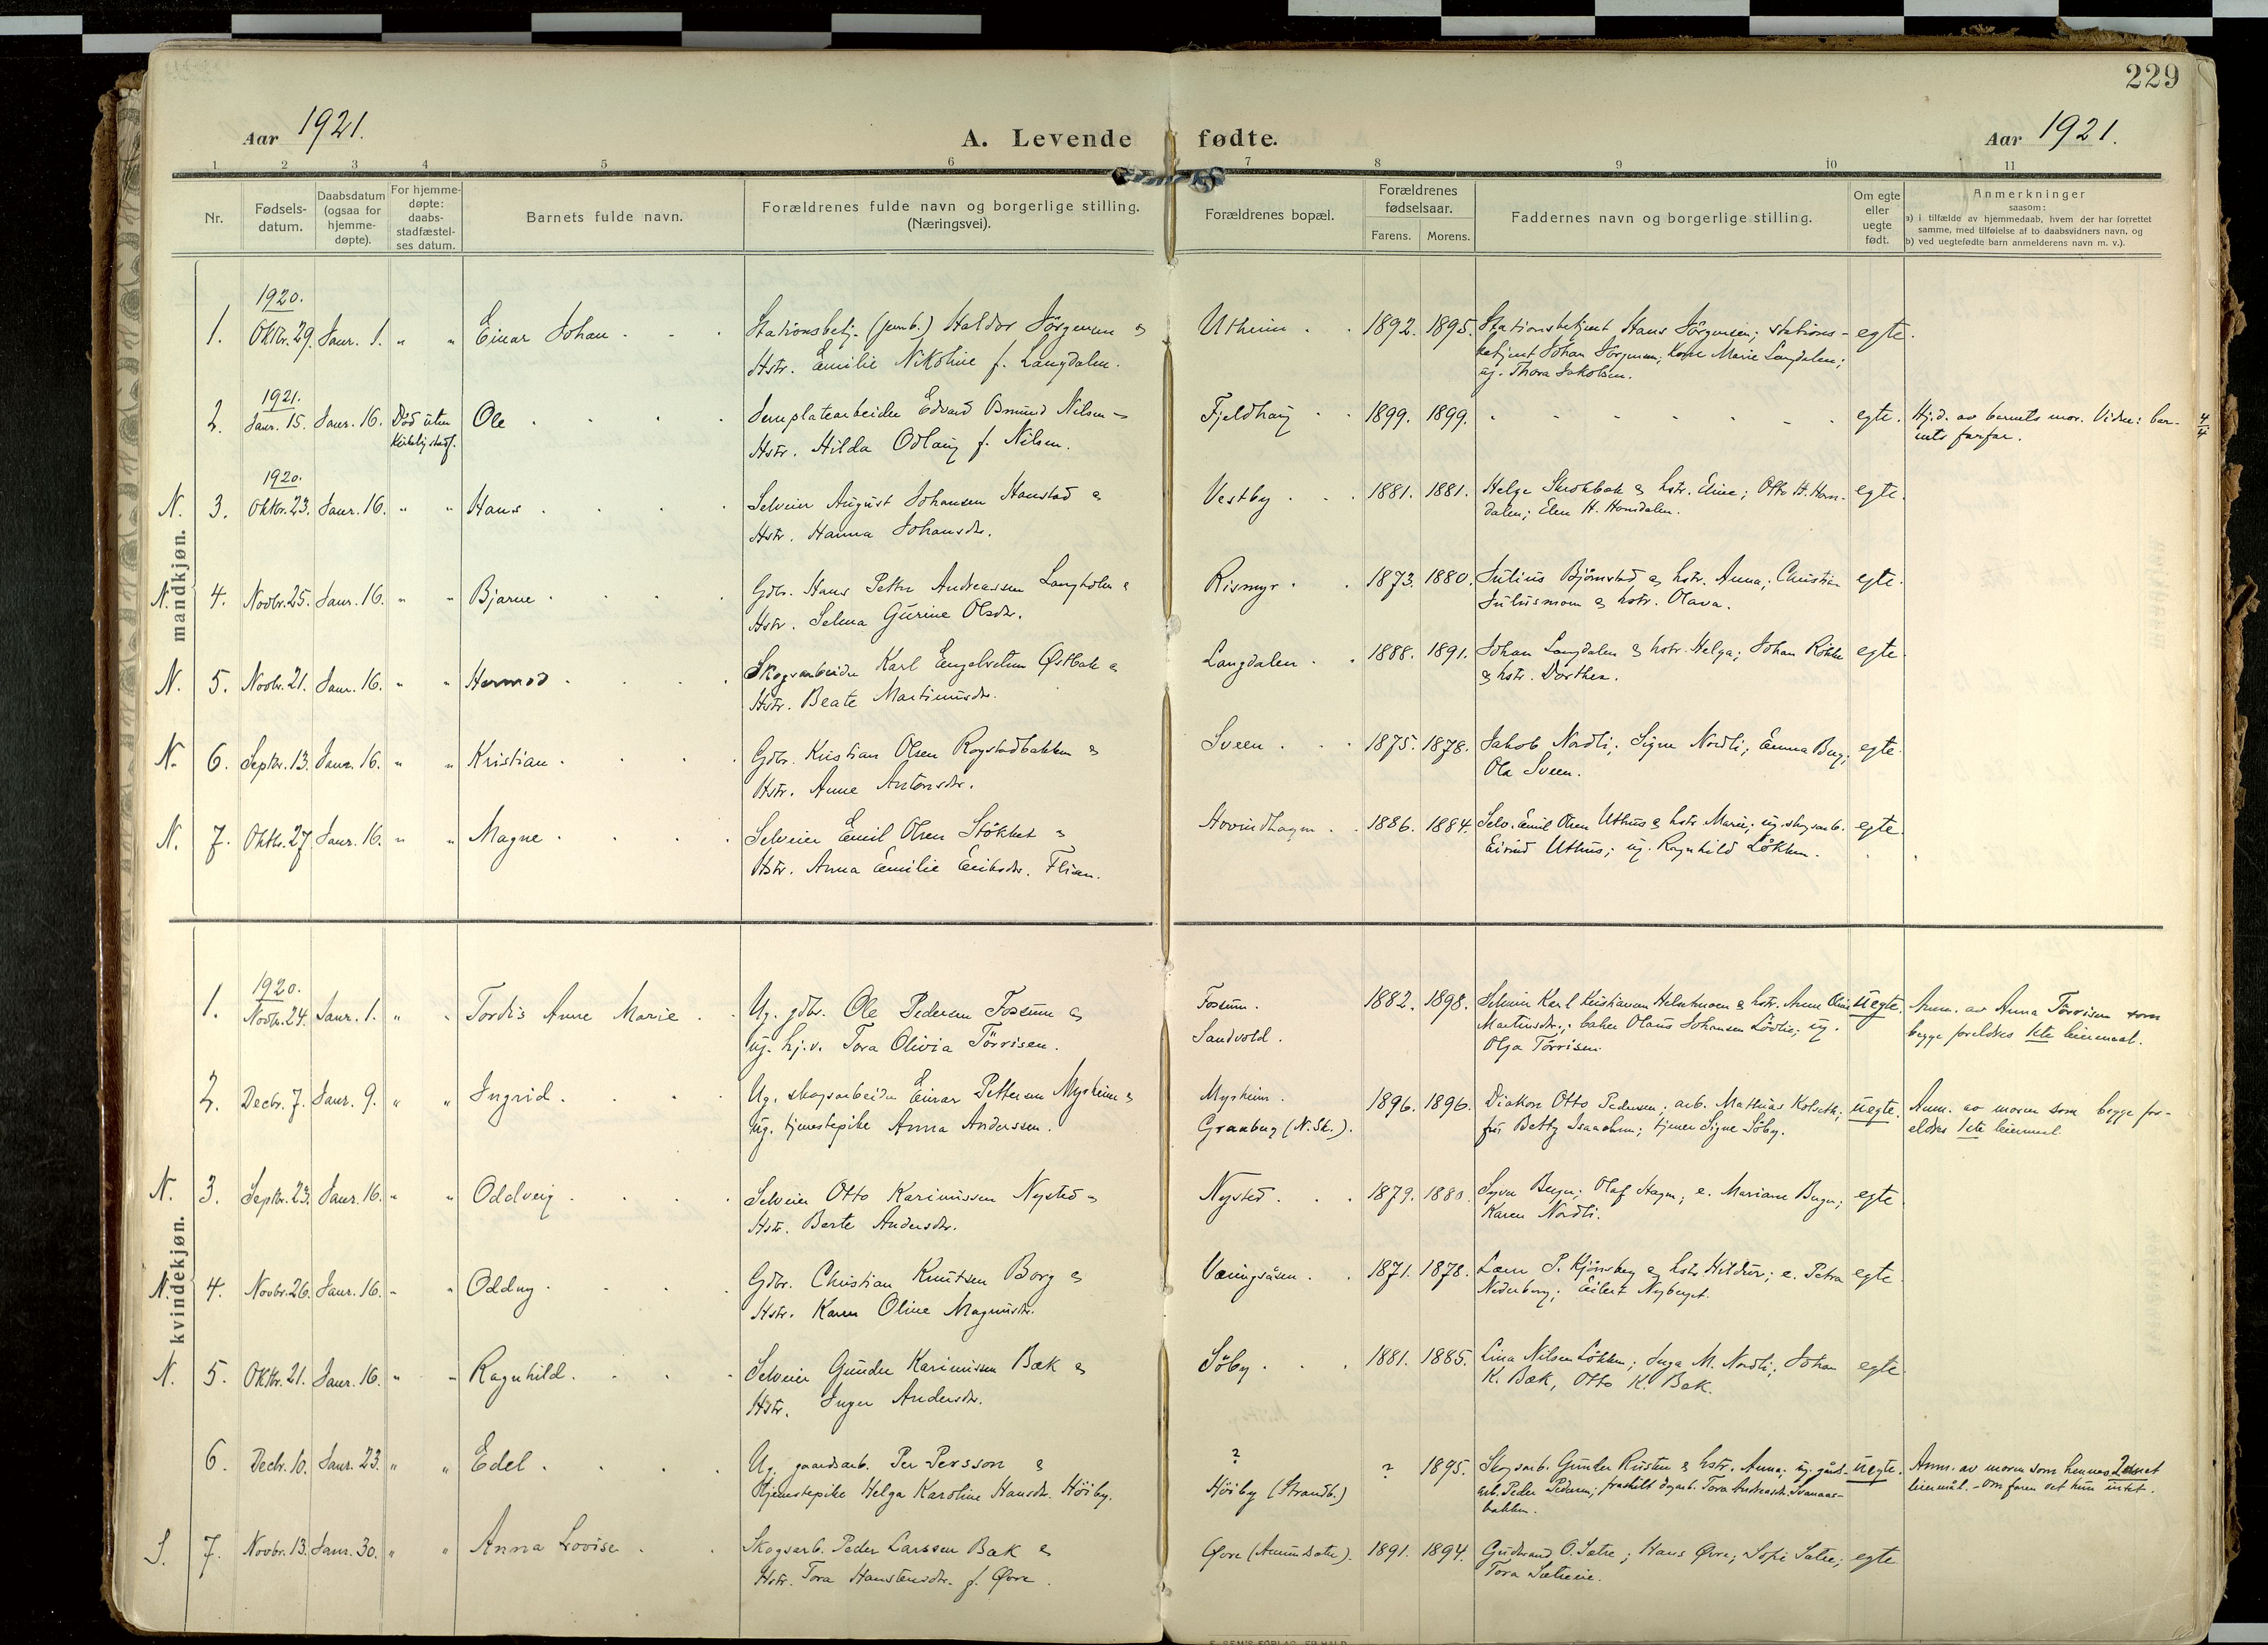 229
Aar 1921.
A. Levende fødte.
Aar 1921.
1 2 3 4 5 6 7 8 9 10 11
Nr.
Fødsels-
datum.
Daabsdatum
(ogsaa for
hjemme-
døpte).
For hjemme-
døpte:
daabs-
stadfæstel-
ses datum.
Barnets fulde navn.
Forældrenes fulde navn og borgerlige stilling.
(Næringsvei).
Forældrenes bopæl.
Forældrenes
fødselsaar.
Farens. Morens.
Faddernes navn og borgerlige stilling.
Om egte
eller
uegte
født.
Anmerkninger
saasom:
a) i tilfælde av hjemmedaab, hvem der har forrettet
samme, med tilføielse av to daabsvidners navn, og
b) ved uegtefødte barn anmelderens navn m. v.).
mandkjøn.
1920.
1. Oktbr. 29. Janr. 1. " " Einar Johan Stationsbetj. (jernb.) Haldor Jörgensen &
Hstr. Emilie Nikoline f. Langdalen.
Utheim 1892. 1895. Stationsbetjent Hans Jörgensen; stations-
betjent Johan Jörgensen; Kone Marie Langdalen;
ug. Thora Jakobsen.
egte.
1921.
2. Janr. 15. Janr. 16. Død uten
kirkelig stadf.
Ole Jernplatearbeider Edvard Osmund Nilsen -
Hstr. Hilda Odlaug f. Nilsen.
Fjeldhaug 1899. 1899. egte. Hj.d. av barnets mor. Vidne: bar-
nets farfar.
4/4
1920.
N. 3. Oktbr. 23. Janr. 16. " " Hans Selveier August Johansen Hanstad &
Hstr. Hanna Johansdr.
Vestby 1881. 1881. Helge Skrokbæk & hstr. Eline; Otto H. Horn-
dalen; Elen H. Horndalen.
egte.
N. 4. Novbr. 25. Janr. 16. " " Bjarne Gdbr. Hans Petter Andreassen Langholen &
Hstr. Selma Gurine Olsdr.
Rismyr 1873. 1880. Julius Björnstad & hstr. Anna; Christian
Juliusmoen & hstr. Olava.
egte.
N. 5. Novbr. 21. Janr. 16. " " Hermod Skogsarbeider Karl Engebretsen Østbæk &
Hstr. Beate Martinusdr.
Langdalen 1888. 1891. Johan Langdalen & hstr. Helga; Johan Rökke
& hstr. Dorthea.
egte.
N. 6. Septbr. 13. Janr. 16. " " Kristian Gdbr. Kristian Olsen Rogstadbakken &
Hstr. Anne Antonsdr.
Sveen 1875. 1878. Jakob Nordli; Signe Nordli; Emma Berg;
Ola Sveen.
egte.
N. 7. Oktbr. 27. Janr. 16. " " Magne Selveier Emil Olsen Stökket &
Hstr. Anna Emilie Eriksdr. Flian.
Hovindhagen 1886. 1884. Selv. Emil Olsen Uthus & hstr. Marie; ug. skogsarb.
Eivind Uthus; ug. Ragnhild Lökken.
egte.
kvindekjøn.
1920.
1. Novbr. 24. Janr. 1. " " Tordis Anne Marie Ug. gdbr. Ole Pedersen Fossum &
ug. hj.v. Tora Olivia Törrisen.
Fossum.
Sandvold.
1882. 1898. Selveier Karl Kristiansen & hstr. Anne
Martinsdr.; baker Olaus Johansen Lövlie; ug.
Olga Törrisen.
uegte. Anm. av Anna Törrisen som
begge foreldres 1ste leiermaal.
2. Decbr. 7. Janr. 9. " " Ingrid Ug. skogsarbeider Einar Pettersen Mysheim &
ug. tjenestepike Anna Anderssen.
Mysheim.
Graaberg (N. Sk.).
1896. 1896. Diakon Otto Pedersen; arb. Mathias Kolseth;
fru Betty Isaachsen; tjener Signe Söby.
uegte. Anm. av moren som begge for-
eldres 1ste leiermaal.
N. 3. Septbr. 23. Janr. 16. " " Oddveig Selveier Otto Karinussen Nysted &
Hstr. Berte Andersdr.
Nysted 1879. 1880. Syver Berger; Olaf Hagen; e. Mariane Berger;
Karen Nordli.
egte.
N. 4. Novbr. 26. Janr. 16. " " Oddny Gdbr. Christian Knutsen Borg &
Hstr. Karen Oline Magnusdr.
Væringsåsen 1871. 1878. Lærer P. Kjönsberg & hstr. Hildur; e. Petra
Nederberg; Eilert Nyberget.
egte.
N. 5. Oktbr. 21. Janr. 16. " " Ragnhild Selveier Gunder Karinussen Bæk &
Hstr. Inger Andersdr.
Söby 1881. 1885. Lina Nilsen Lökken; Inga M. Nordli; Johan
K. Bæk, Otto K. Bæk.
egte.
6. Decbr. 10. Janr. 23. " " Edel Ug. gaardsarb. Per Persson &
tjenestepike Helga Karoline Hansdr. Höiby.
?
Höiby (Strandb.)
? 1895. Skogsarb. Gunder Rusten & hstr. Anna; ug. gårds-
arb. Peder Pedersen; fraskilt dagarb. Tora Andreasdr. Svenaas-
bakken.
uegte. Anm. av moren som hennes 2det
leiermål. - Om faren vet hun intet.
S. 7. Novbr. 13. Janr. 30. " " Anna Lovise Skogsarb. Peder Larssen Bæk &
Hstr. Tora Hanstensdr. f. Øvre.
Øvre (Amundsæter). 1891. 1894. Gudbrand O. Sætre; Hans Øvre; Sofie Sætre;
Tora Sætreeie.
egte